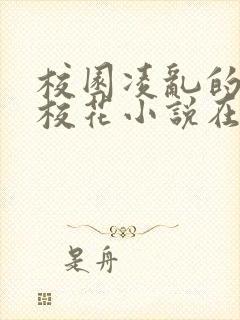 校園凌亂的
校花小說在
是舟